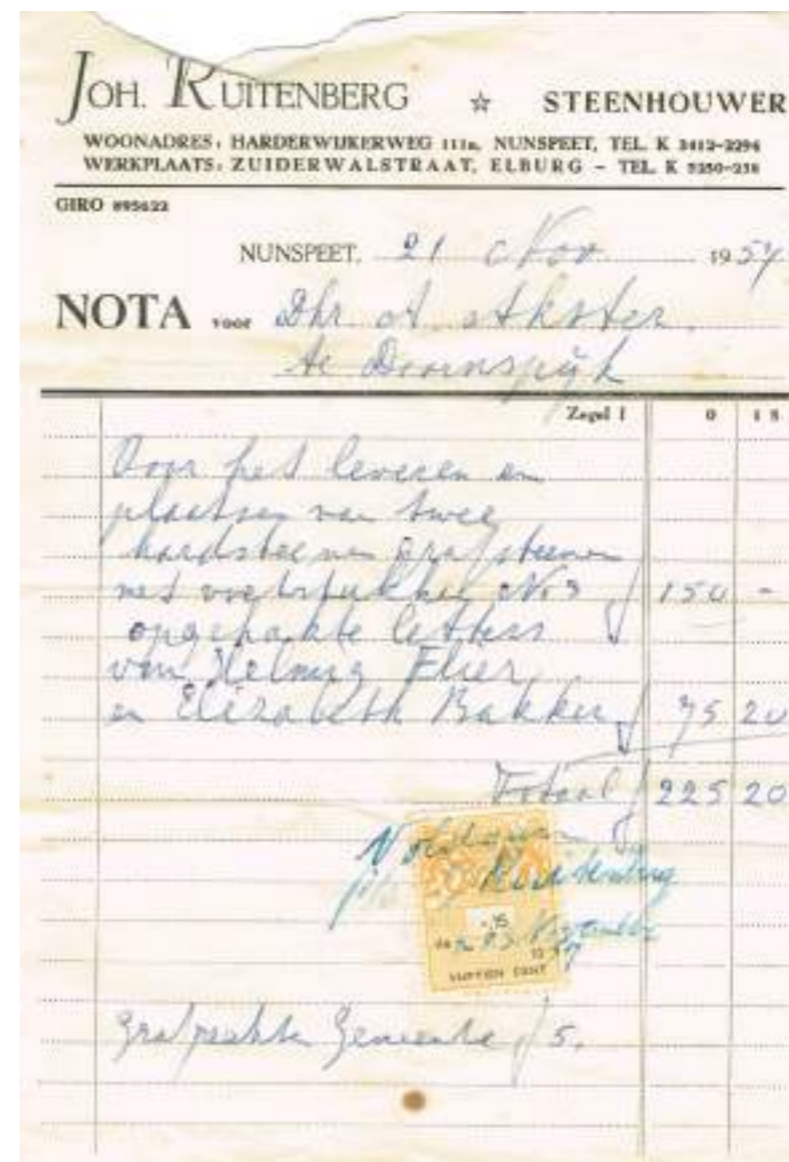 JOH. RUITENBERG ☆ STEENHOUWER
WOONADRES: HARDERWIJKERWEG 111a, NUNSPEET, TEL. K 3412-2294
WERKPLAATS: ZUIDERWALSTRAAT, ELBURG - TEL. K 5250-238
GIRO 895622
NUNSPEET, 21 Nov. 1957
NOTA voor Dhr A.
te Doornspijk
Zegel f 0 15
Voor het leveren en
plaatsen van twee
hardsteenen grafsteenen
met voetstukken No 3 f 150 -
opgehakte letters
van Helmig Flier
en Elizabeth Bakker f 75 20
Totaal f 225 20
Voldaan
Ruitenberg
-,15
de 23 November
19 57
VIJFTIEN CENT
grafrechte Gemeente f 5,